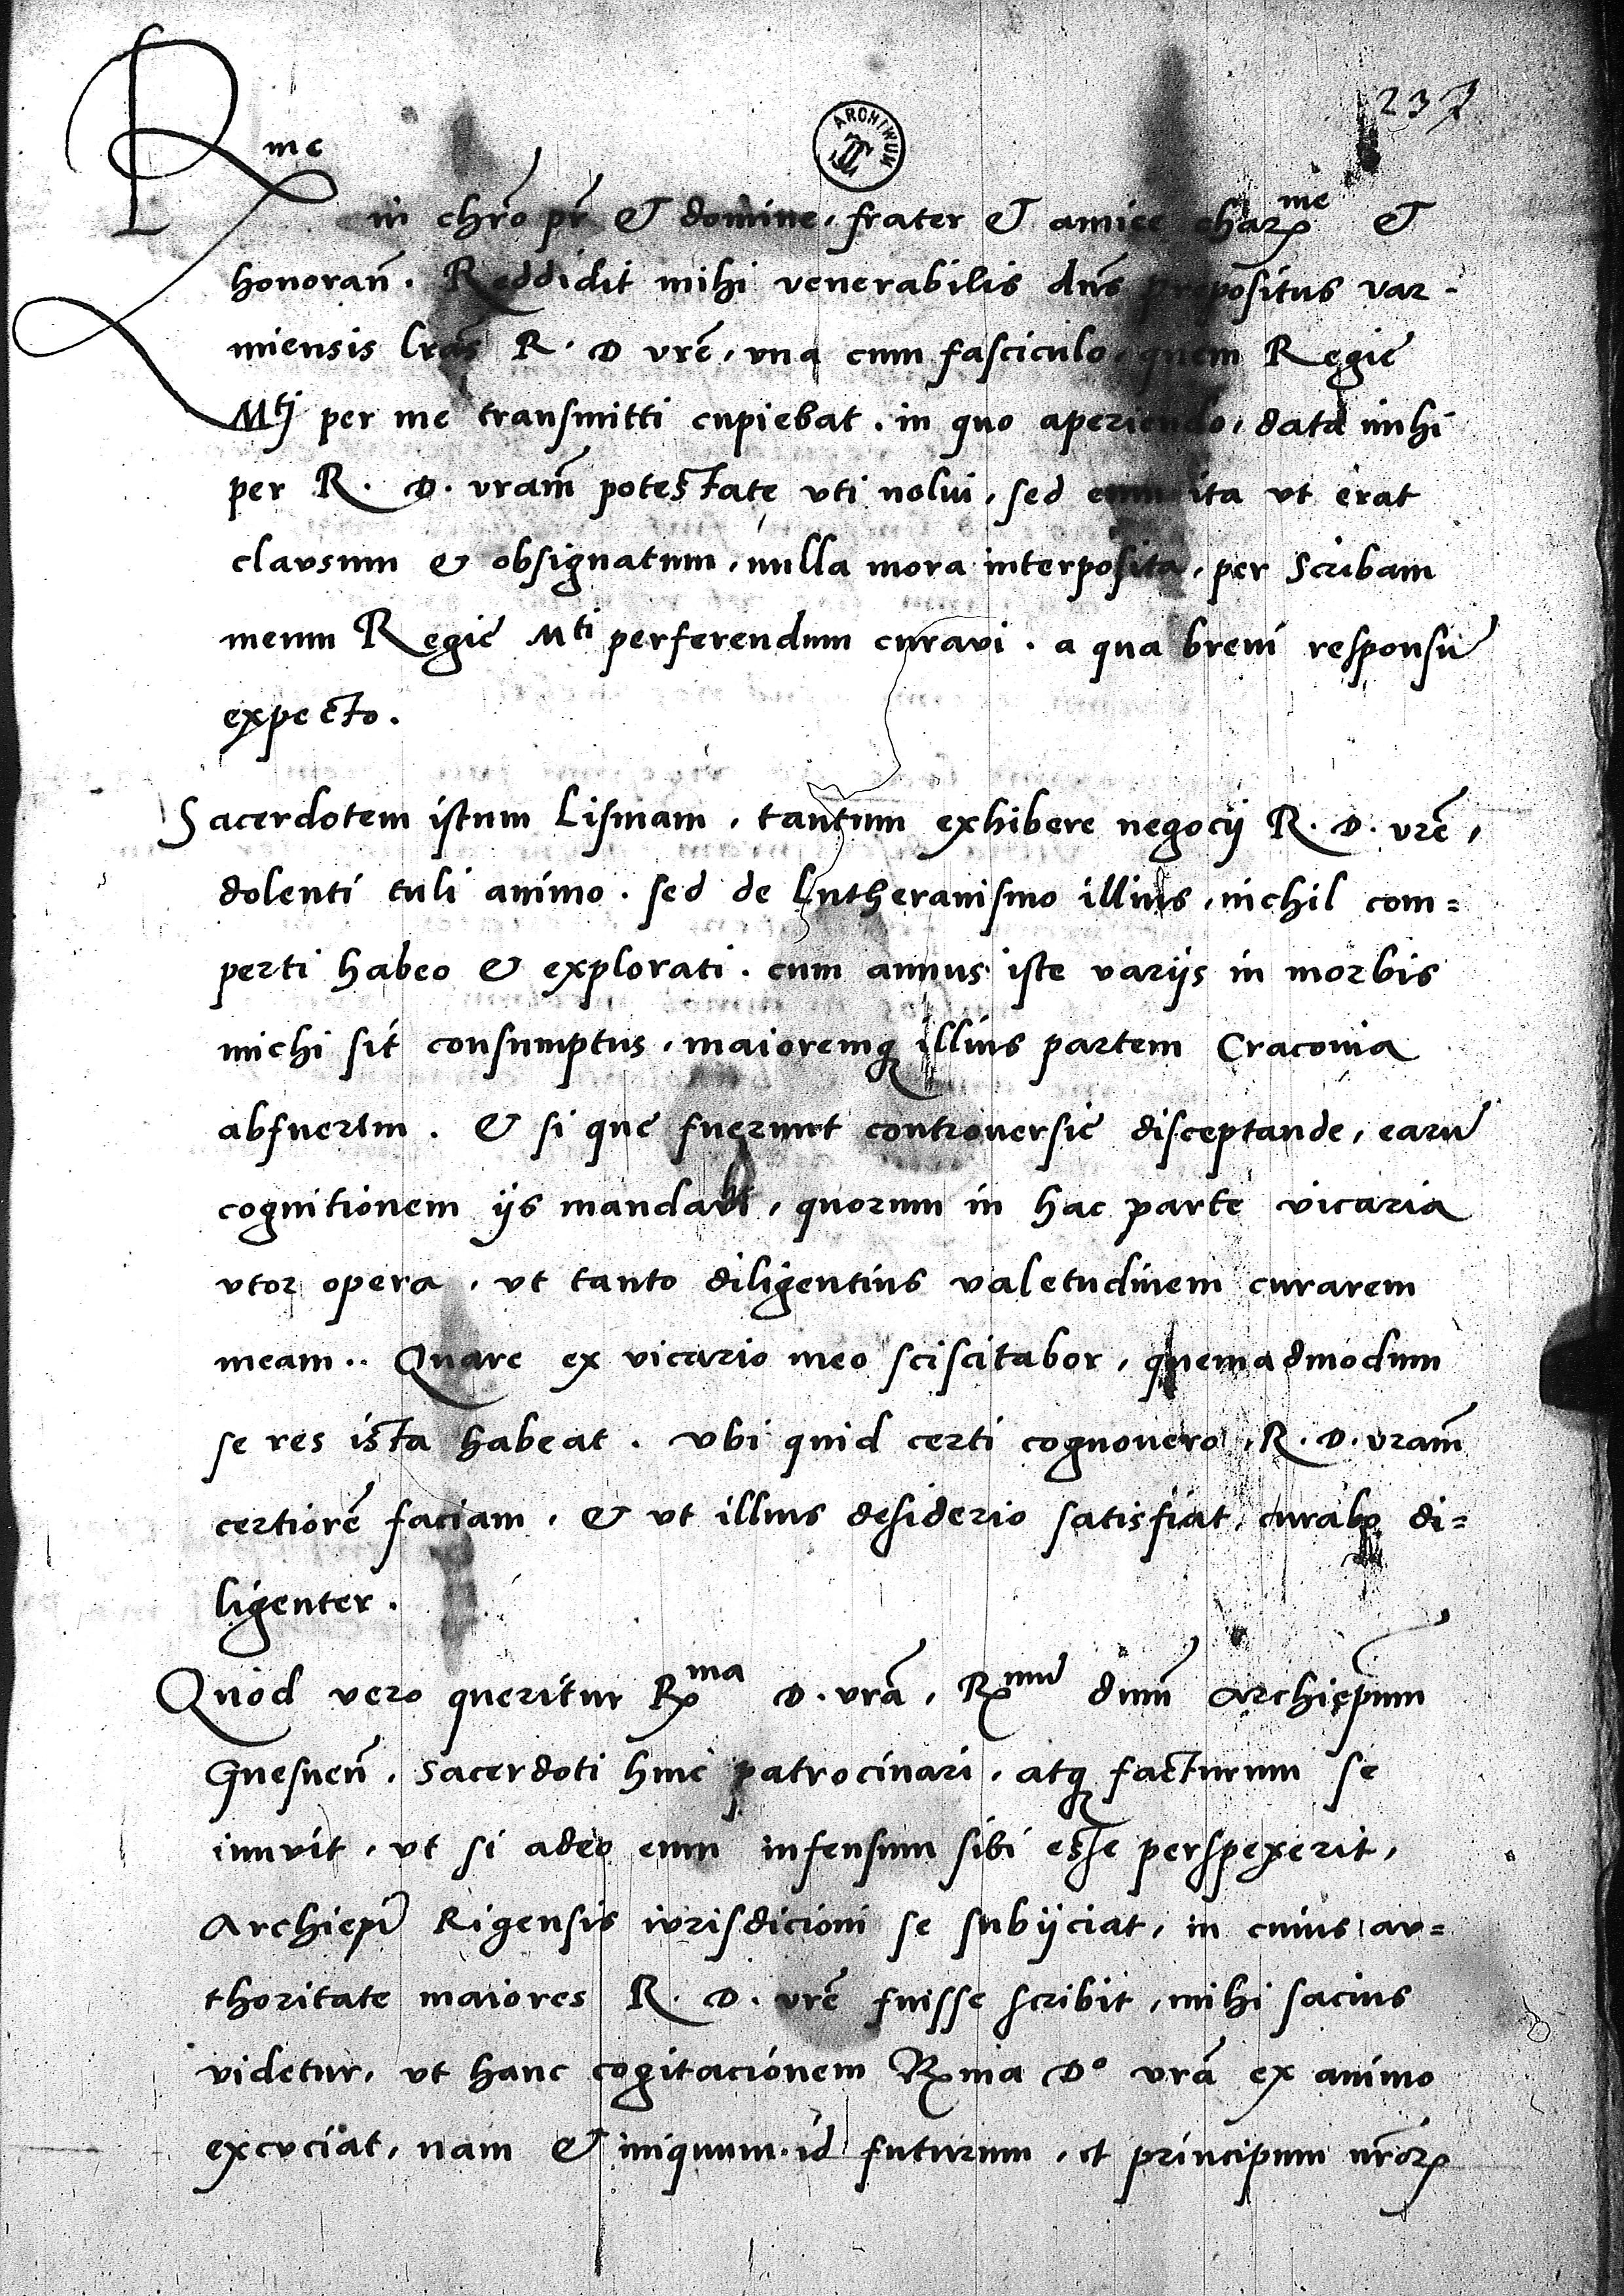 237
ARCHIWUM
Rme
in chr̃o pr̃ & domine, frater & amice charꝝme &
honorañ. Reddidit mihi venerabilis dñs prepositus var-
miensis lr̃as R. D vrẽ, vna cum fasciculo, quem Regię
Mtj per me transmitti cupiebat. in quo aperiendo, data mihi
per R. D. vram̃ potestate vti nolui, sed eum ita vt erat
clausum & obsignatum, nulla mora interposita, per Scribam
meum Regię Mti perferendum curavi. a qua brevi responsũ
expecto.
Sacerdotem istum Lismam, tantum exhibere negocij R. D. vrẽ,
dolenti tuli animo. sed de Lutheranismo illius, nichil com=
perti habeo & explorati. cum annus iste varijs in morbis
michi sit consumptus, maioremqꝫ illius partem Cracovia
abfuerim. & si quę fuerunt controuersię disceptande, earũ
cognitionem ijs mandavi, quorum in hac parte vicaria
vtor opera, vt tanto diligentius valetudinem curarem
meam.. Quare ex vicario meo sciscitabor, quemadmodum
se res ista habeat. Vbi quid certi cognouero, R. D. vram̃
certiorẽ faciam, & vt illius desiderio satisfiat, curabo di=
ligenter.
Quod vero queritur Rꝝma D. vrã, Rꝝmũ dnum̃ Archiep̃um
Gnesneñ. Sacerdoti huic patrocinari, atqꝫ facturum se
innvit, vt si adeo eum infensum sibi esse perspexerit,
Archiepĩ Rigensis iurisdicioni se subijciat, in cuius au=
thoritate maiores R. D. vrẽ fuisse scribit, mihi sacius
videtur, vt hanc cogitacionem Rꝝma Do vrã ex animo
excuciat, nam & iniquum id futurum, et principum nr̃orꝝ